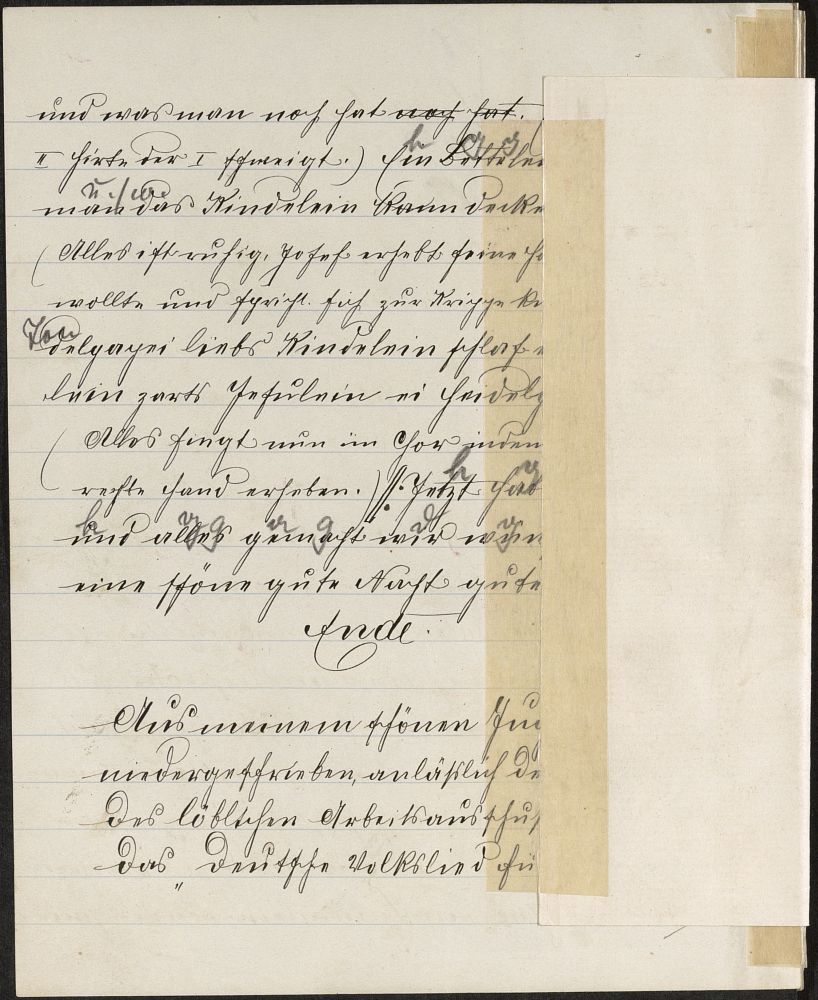 und was man noch hat noch hat.
II Hirte der I schweigt.) Ein Bettelei
u. s. w.
man das Kindelein kann decke
(Alles ist ruhig, Josef erhebt seine H
wollte und spricht. sich zur Krippe
delpapei liebs Kindelein schlaf
lein zarts Jesulein ei Heidelp
(Alles singt nun im Chor inden
rechte Hand erheben.) //: Jetzt hab
und alles gemacht wir wün
eine schöne gute Nacht gute
Ende.
Aus meinem schönen Ju
niedergeschrieben, anläßlich de
des löblichen Arbeitsausschus
das „Deutsche Volkslied fü